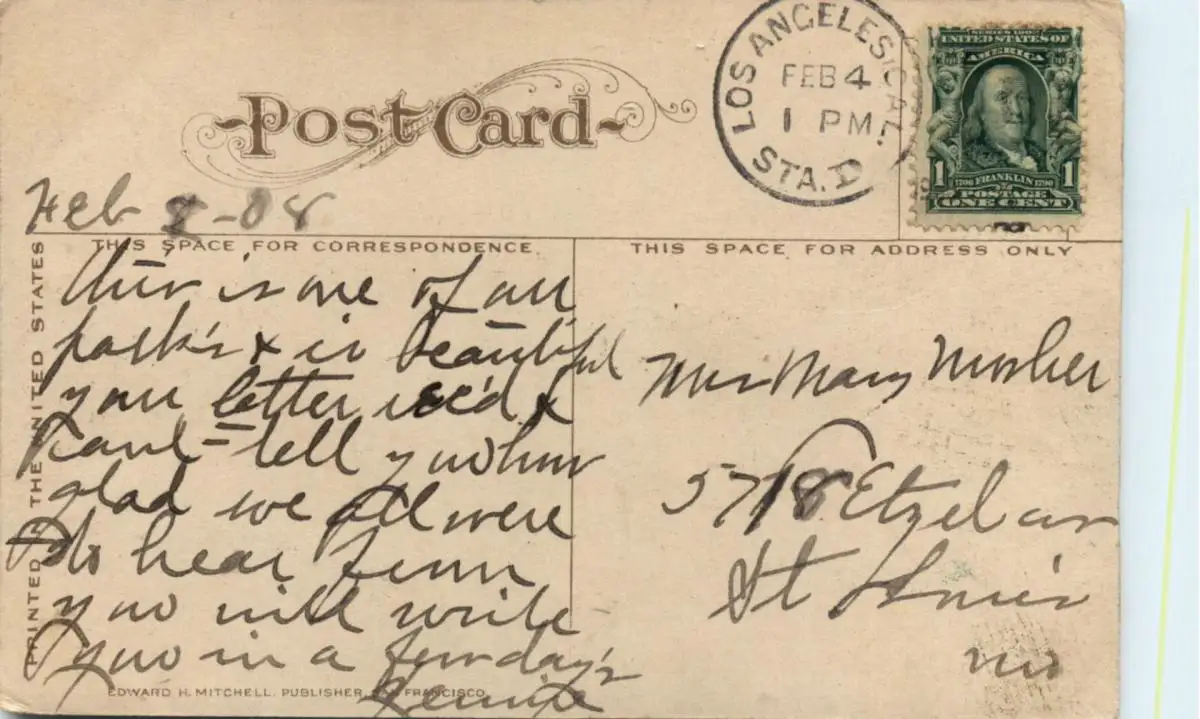 Post Card
LOS ANGELES, CAL.
FEB 4
1 PM
STA. D
SERIES 1902
UNITED STATES OF
AMERICA
1 1706 FRANKLIN 1790 1
POSTAGE
ONE CENT
Feb 2-08
THIS SPACE FOR CORRESPONDENCE.
THIS SPACE FOR ADDRESS ONLY
PRINTED IN THE UNITED STATES
This is one of our
park's & is beautiful
your letter rec'd &
cant tell you how
glad we all were
to hear from
you will write
you in a few day's
Mrs Mary Mosher
5718 Etzel av
St Louis
Mo
EDWARD H. MITCHELL, PUBLISHER, SAN FRANCISCO